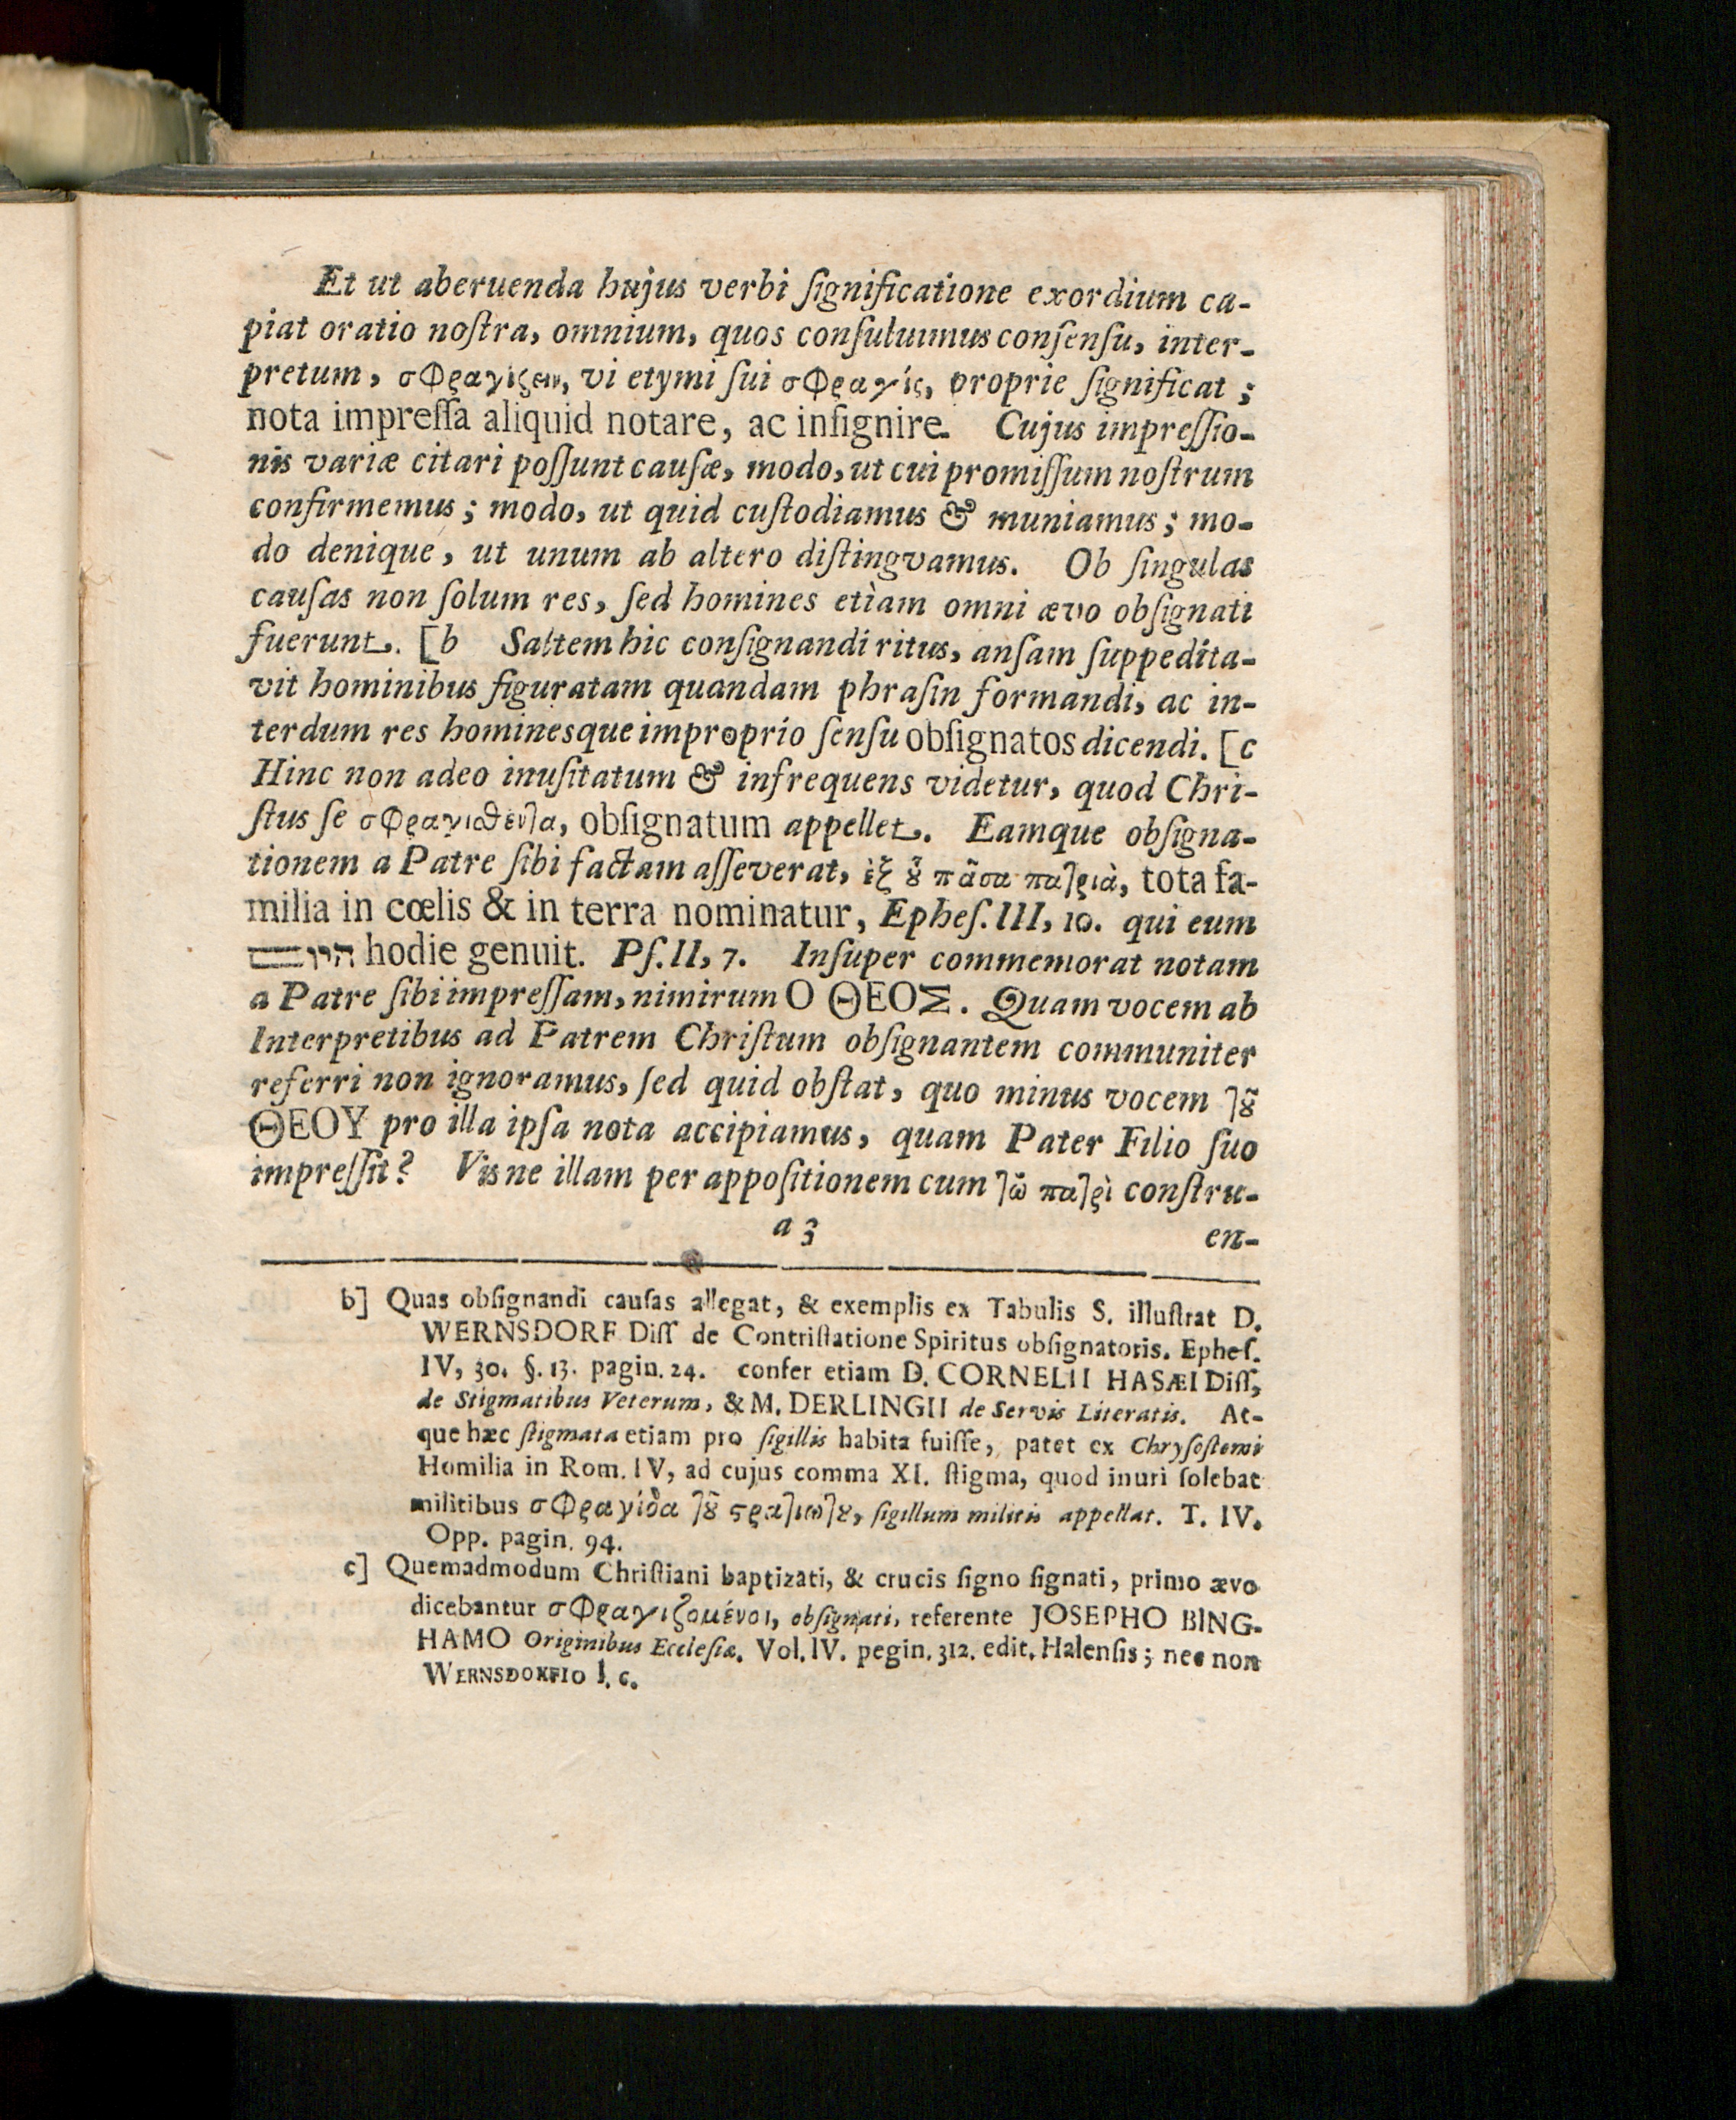 Et ut aberuenda hujus verbi ſignificatione exordium ca-
piat oratio noſtra, omnium, quos conſuluimus conſenſu, inter-
pretum, σφραγιζειν, vi etymi ſui σφραγίς, proprie ſignificat;
nota impreſſa aliquid notare, ac inſignire. Cujus impreſſio-
nis variæ citari poſſunt cauſæ, modo, ut cui promiſſum noſtrum
confirmemus; modo, ut quid cuſtodiamus & muniamus; mo-
do denique, ut unum ab altero diſtingvamus. Ob ſingulas
cauſas non ſolum res, ſed homines etìam omni ævo obſignati
fuerunt. [b Saltem hic conſignandi ritus, anſam ſuppedita-
vit hominibus figuratam quandam phraſin formandi, ac in-
terdum res hominesque improprio ſenſu obſignatos dicendi. [c
Hinc non adeo inuſitatum & infrequens videtur, quod Chri-
ſtus ſe σφραγισθένλα, obſignatum appellet. Eamque obſigna-
tionem a Patre ſibi factam aſſeverat, ἐξ ȣ̃ πᾶσα παλριὰ, tota fa-
milia in cœlis & in terra nominatur, Epheſ. III, 10. qui eum
היום hodie genuit. Pſ. II, 7. Inſuper commemorat notam
a Patre ſibi impreſſam, nimirum Ο ΘΕΟΣ. Quam vocem ab
Interpretibus ad Patrem Chriſtum obſignantem communiter
referri non ignoramus, ſed quid obſtat, quo minus vocem τȣ̃
ΘΕΟΥ pro illa ipſa nota accipiamus, quam Pater Filio ſuo
impreſſit? Visne illam per appoſitionem cum τῶ πατρὶ conſtru-
a 3 en-
b] Quas obſignandi cauſas allegat, & exemplis ex Tabulis S. illuſtrat D.
WERNSDORF Diſſ de Contriſtatione Spiritus obſignatoris. Epheſ.
IV, 30. §. 13. pagin. 24. confer etiam D. CORNELII HASÆI Diſſ,
de Stigmatibus Veterum, & M. DERLINGII de Servis Literatis. At-
que hæc ſtigmata etiam pro ſigillis habita fuiſſe, patet ex Chryſoſtomi
Homilia in Rom. IV, ad cujus comma XI. ſtigma, quod inuri ſolebat
militibus σφραγίδα τȣ̃ ϛρατιώτȣ, ſigillum militis appellat. T. IV.
Opp. pagin. 94.
c] Quemadmodum Chriſtiani baptizati, & crucis ſigno ſignati, primo ævo
dicebantur σφραγιζομένοι, obſignati, referente JOSEPHO BING-
HAMO Originibus Eccleſiæ. Vol. IV. pegin. 312. edit. Halenſis; nec non
WERNSDORFIO l. c.